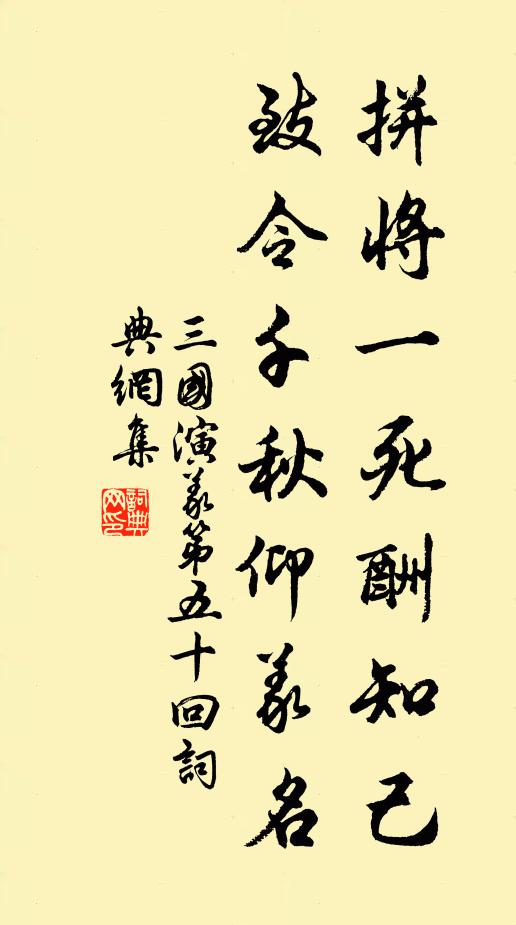 拼將一死酬知己
致令千秋仰義名
三國演義第五十回詞
典網集
詞典网印